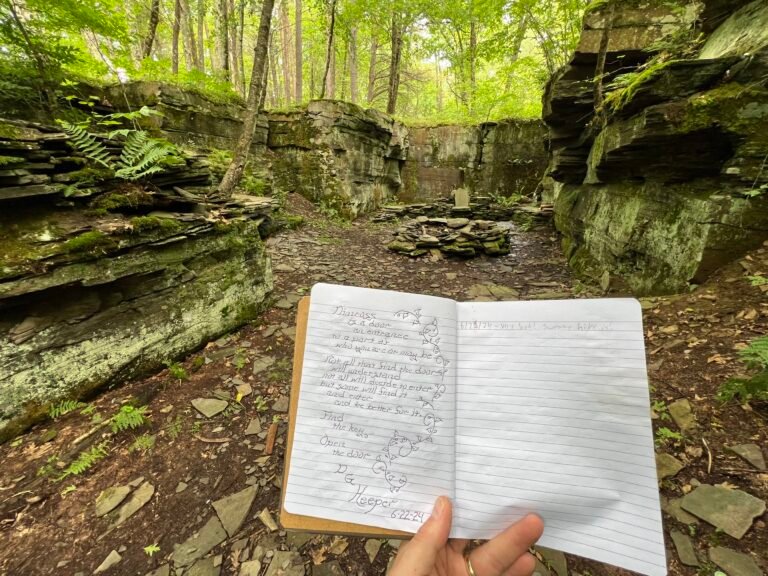 is a door
an entrance
to a part of
who you are or may be
Not all that find the door
will understand
not all will decide to enter
but some will find it
and enter
and be better for it.
Find
the key
Open
the door
DG
Keeper
6-22-24
6/23/24 - hike